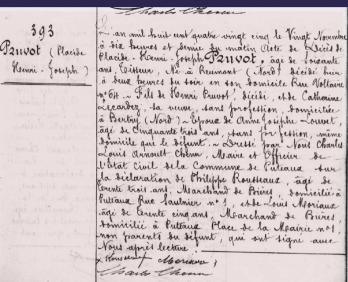 393
Pruvot (Placide
Henri-Joseph)
L'an mil huit cent quatre vingt cinq le Vingt Novembre
à dix heures et demie du matin Acte de Décès de
Placide-Henri-Joseph Pruvot, âgé de soixante
ans, Tisseur, Né à Reumont (Nord) décédé hier
à deux heures du soir, en son domicile Rue Voltaire
n° 64. ~ Fils de Henri Pruvot, décédé, et de Catherine
Lecardez, sa veuve, sans profession, domiciliée
à Bertry (Nord) ~ Epoux de Anne Joseph Louvet,
âgée de Cinquante trois ans, sans profession, même
domicile que le défunt. ~ Dressé par Nous Charles
Louis Arnoult Chenu, Maire et Officier de
l'état civil de la Commune de Puteaux sur
la déclaration de Philippe Rousseaux âgé de
trente trois ans, Marchand de Bières, domicilié à
Puteaux Rue Saulnier n° 1, et de Louis Moriaux
âgé de trente cinq ans, Marchand de Bières,
domicilié à Puteaux Place de la Mairie n° 1,
non parents du défunt, qui ont signé avec
Nous après lecture.
Rousseaux Moriaux
Charles Chenu